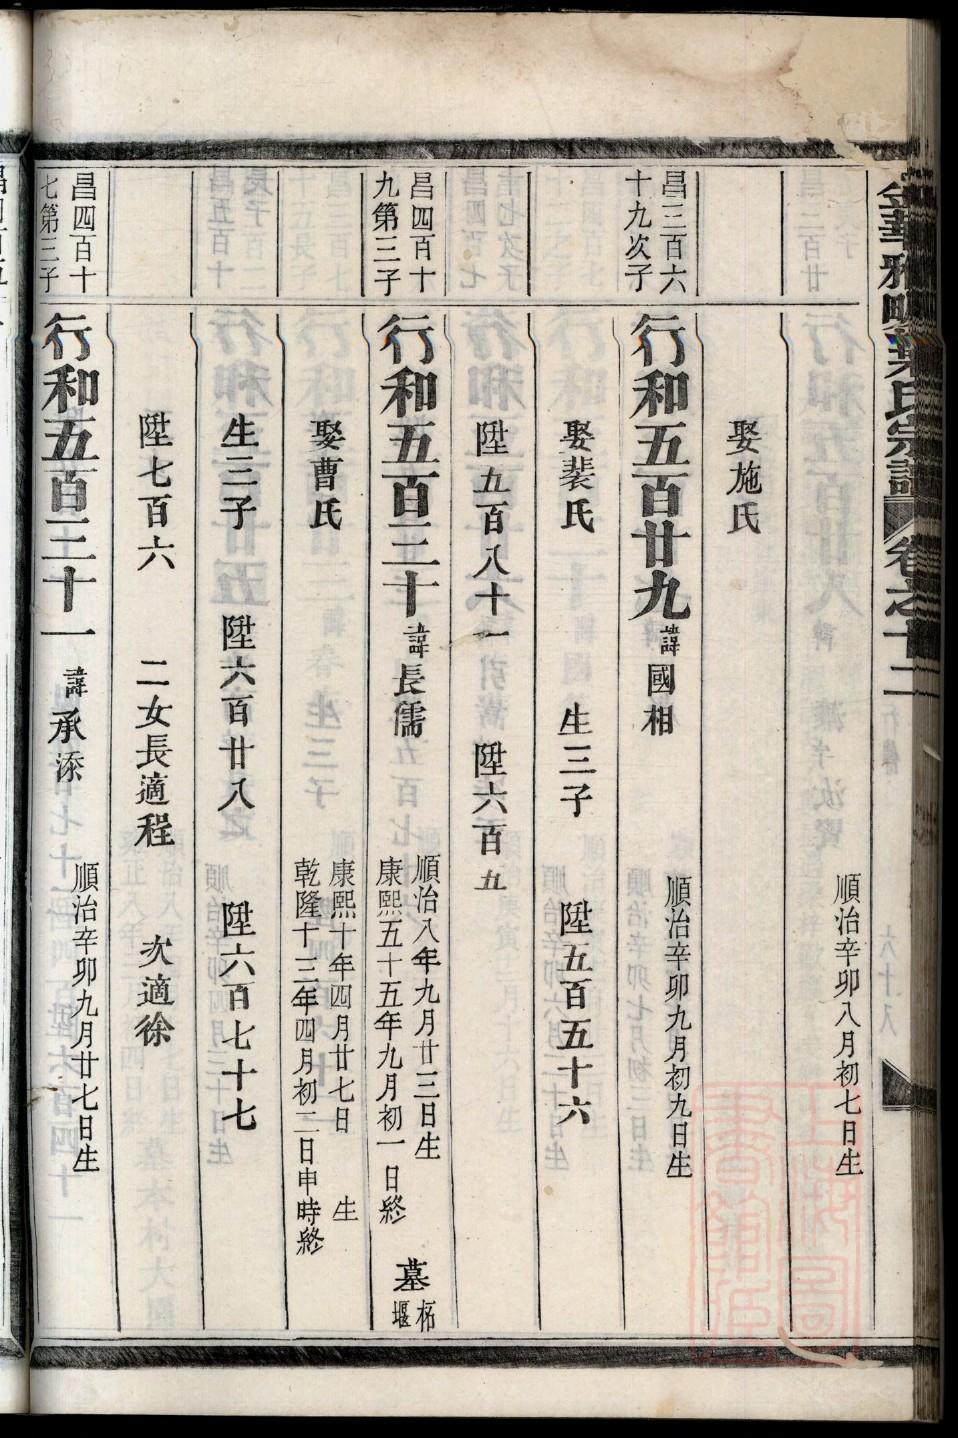 葉氏宗譜 卷之十二
順治辛卯八月初七日生
娶施氏
昌三百六十九次子
行和五百廿九 諱國相 順治辛卯九月初九日生
娶裴氏 生三子 陞五百五十六
陞五百八十一 陞六百五
昌四百十九第三子
行和五百三十 諱長儒 順治八年九月廿三日生 康熙五十五年九月初一日終 墓柘堰
娶曹氏 康熙十年四月廿七日生 乾隆十三年四月初二日申時終
生三子 陞六百廿八 陞六百七十七
陞七百六 二女長適程 次適徐
昌四百十七第三子
行和五百三十一 諱承添 順治辛卯九月廿七日生